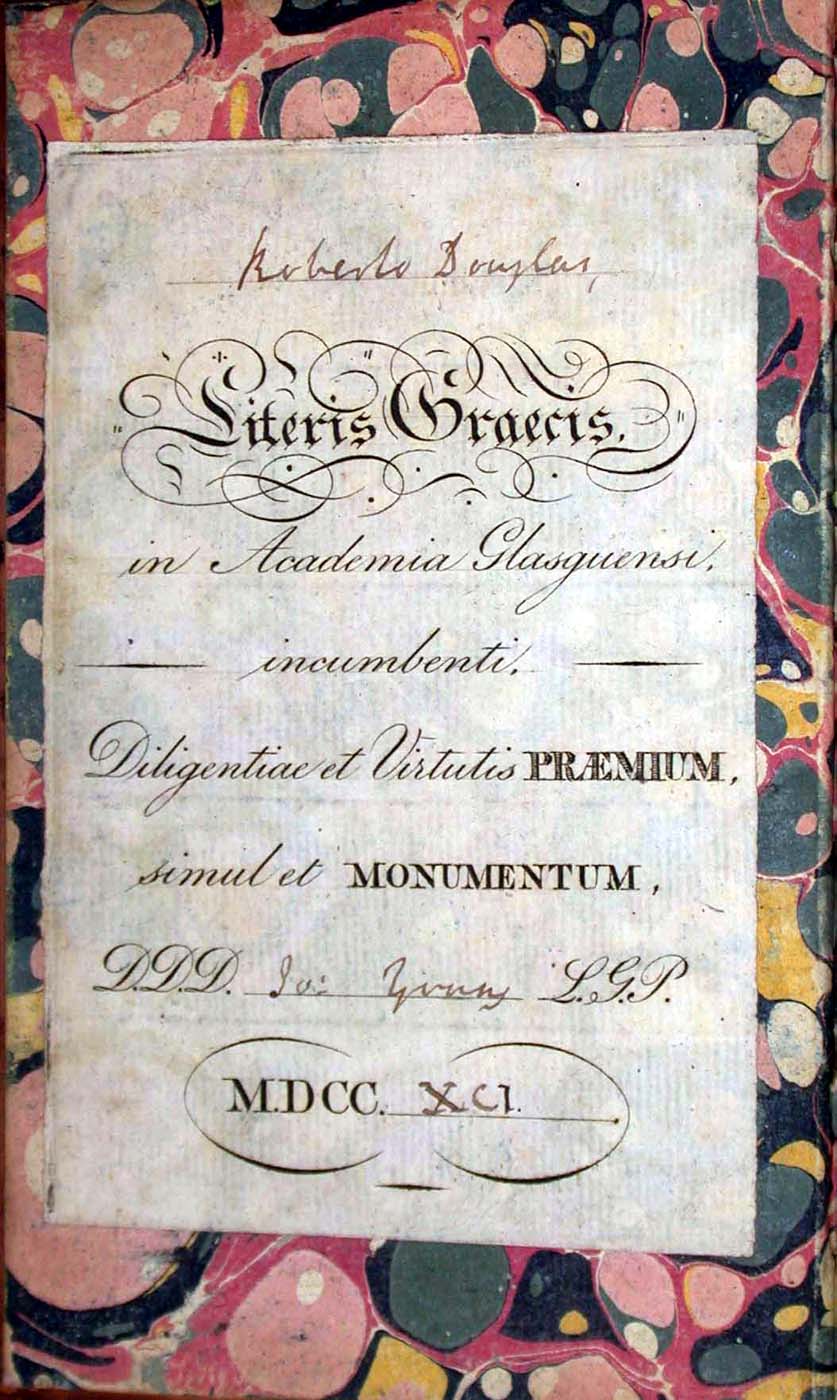 Roberto Douglas,
Literis Graecis.
in Academia Glasguensi,
incumbenti,
Diligentiae et Virtutis PRÆMIUM,
simul et MONUMENTUM,
D.D.D. Jo: Young L.G.P.
M.DCC. XCI.